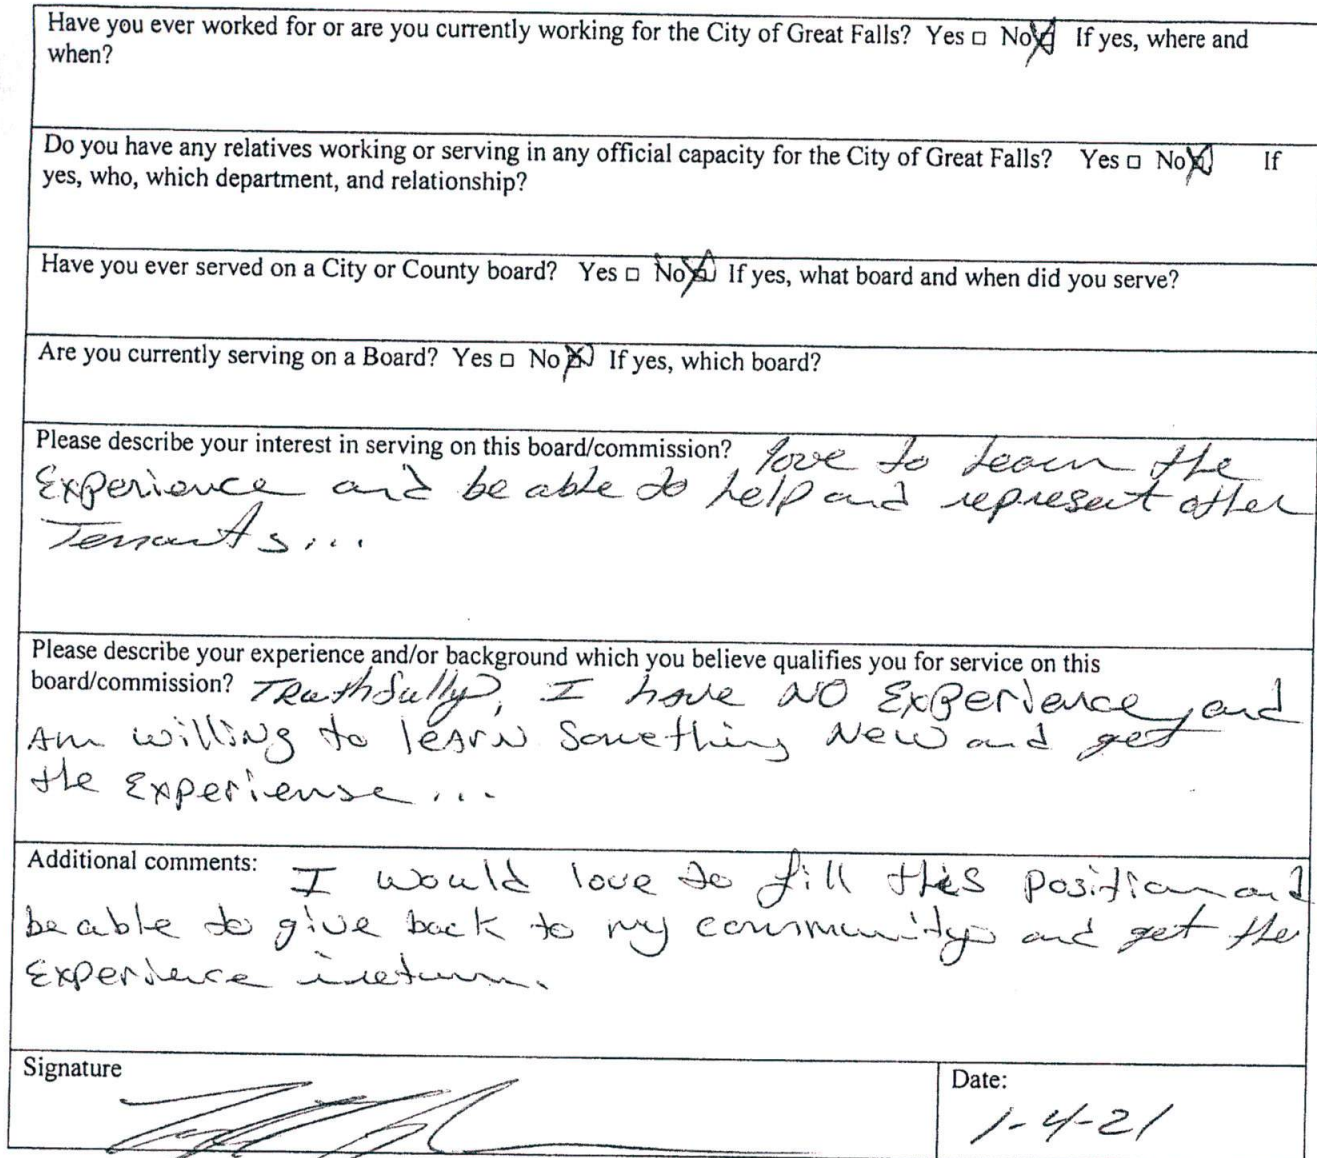 Have you ever worked for or are you currently working for the City of Great Falls? Yes □ No ☒ If yes, where and
when?
Do you have any relatives working or serving in any official capacity for the City of Great Falls? Yes □ No ☒ If
yes, who, which department, and relationship?
Have you ever served on a City or County board? Yes □ No ☒ If yes, what board and when did you serve?
Are you currently serving on a Board? Yes □ No ☒ If yes, which board?
Please describe your interest in serving on this board/commission? love to learn the
Experience and be able to help and represent other
Tenants...
Please describe your experience and/or background which you believe qualifies you for service on this
board/commission? Truthfully, I have NO Experience, and
Am willing to learn Something New and get
the Experiense...
Additional comments: I would love to fill this position and
be able to give back to my community and get the
Experience inreturn.
Signature
Date:
1-4-21